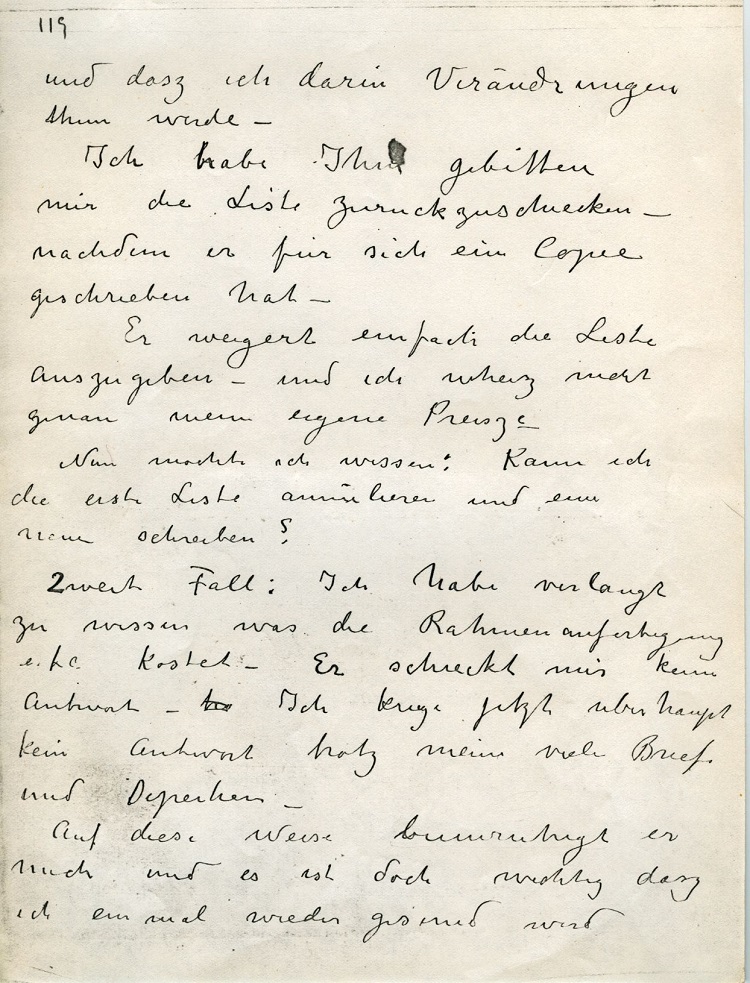 119
und dasz ich darin Verändrungen
thun werde –
Ich habe Ihm gebitten
mir die Liste zuruckzuschicken –
nachdem er für sich ein Copee
geschrieben hat –
Er weigert einfach die Liste
auszugeben – und ich nicht
genau meine eigene Preisze
Nun mochte ich wissen: Kann ich
die erste Liste annulieren und eine
neue schreiben?
2weite Fall: Ich habe verlangt
zu wissen was die Rahmenanfertigung
e.t.c. Kostet – Er schickt mir kein
Antwort – Ich kriege jetzt uberhaupt
kein Antwort trotz meine viele Briefe
und Depechen –
Auf diese Weise beunruhigt er
mich und es ist doch wichtig dasz
ich ein mal wieder gesund werd